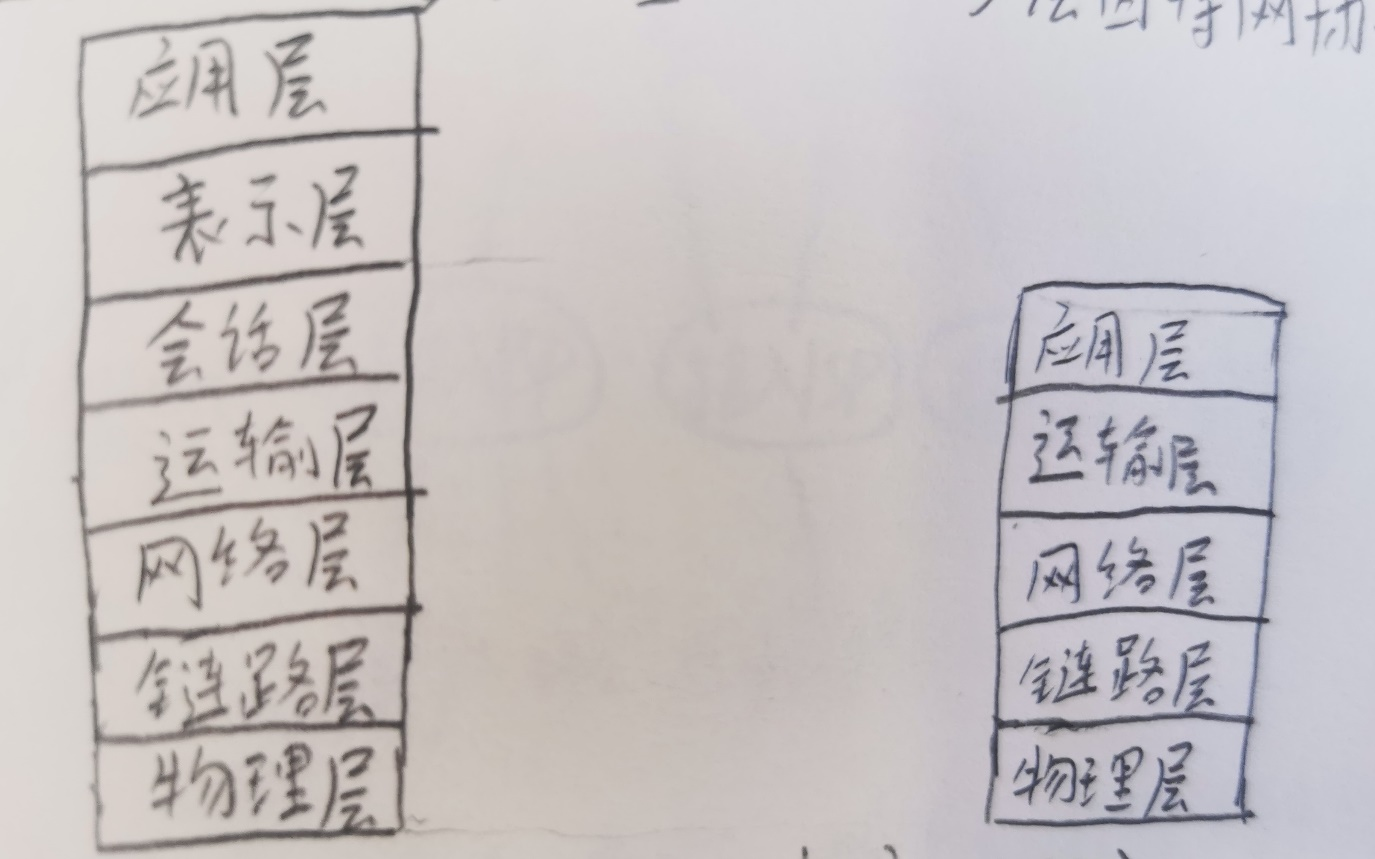 应用层
表示层
会话层
运输层
网络层
链路层
物理层
应用层
运输层
网络层
链路层
物理层